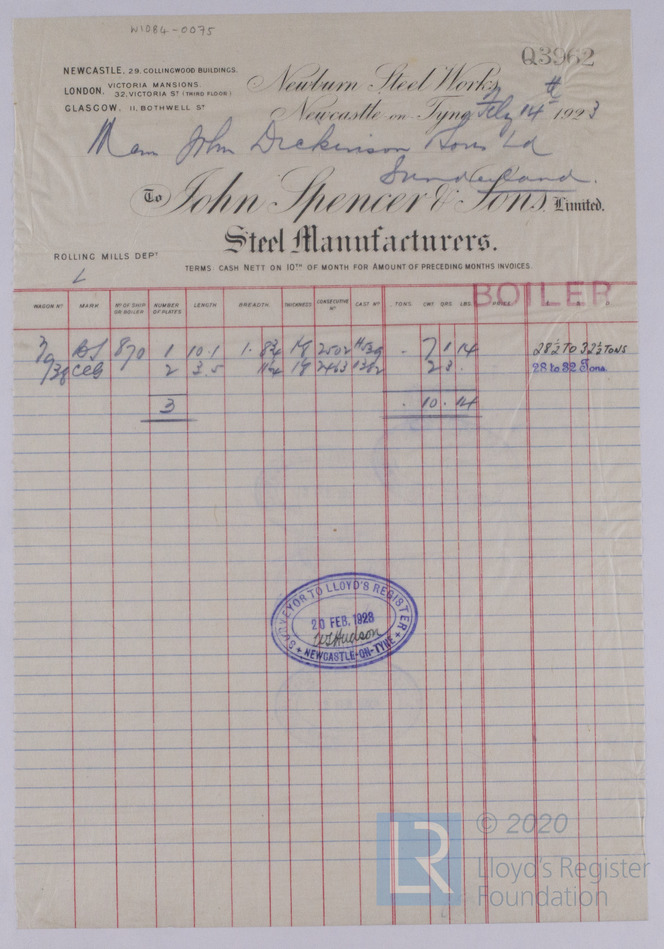 W1084-0075
Q3962
NEWCASTLE, 29. COLLINGWOOD BUILDINGS.
LONDON, VICTORIA MANSIONS.
32, VICTORIA ST (THIRD FLOOR)
GLASGOW, 11, BOTHWELL ST
Newburn Steel Works,
Newcastle-on-Tyne, Feby 14th 1923
Messrs John Dickinson Sons Ld
Sunderland.
To John Spencer & Sons, Limited.
Steel Manufacturers.
ROLLING MILLS DEPT
TERMS CASH NETT ON 10TH OF MONTH FOR AMOUNT OF PRECEDING MONTHS INVOICES.
L
BOILER
WAGON No MARK No OF SHIP OR BOILER NUMBER OF PLATES LENGTH BREADTH. THICKNESS CONSECUTIVE No CAST No TONS CWT QRS LBS
870 1 10.1 2502 7 1 14 28½ TO 32½ TONS
2 3.5 2463 28 to 32 Tons
3 10 . 14
SURVEYOR TO LLOYD'S REGISTER
20 FEB. 1923
Hudson
NEWCASTLE-ON-TYNE
LR
© 2020
Lloyd's Register
Foundation